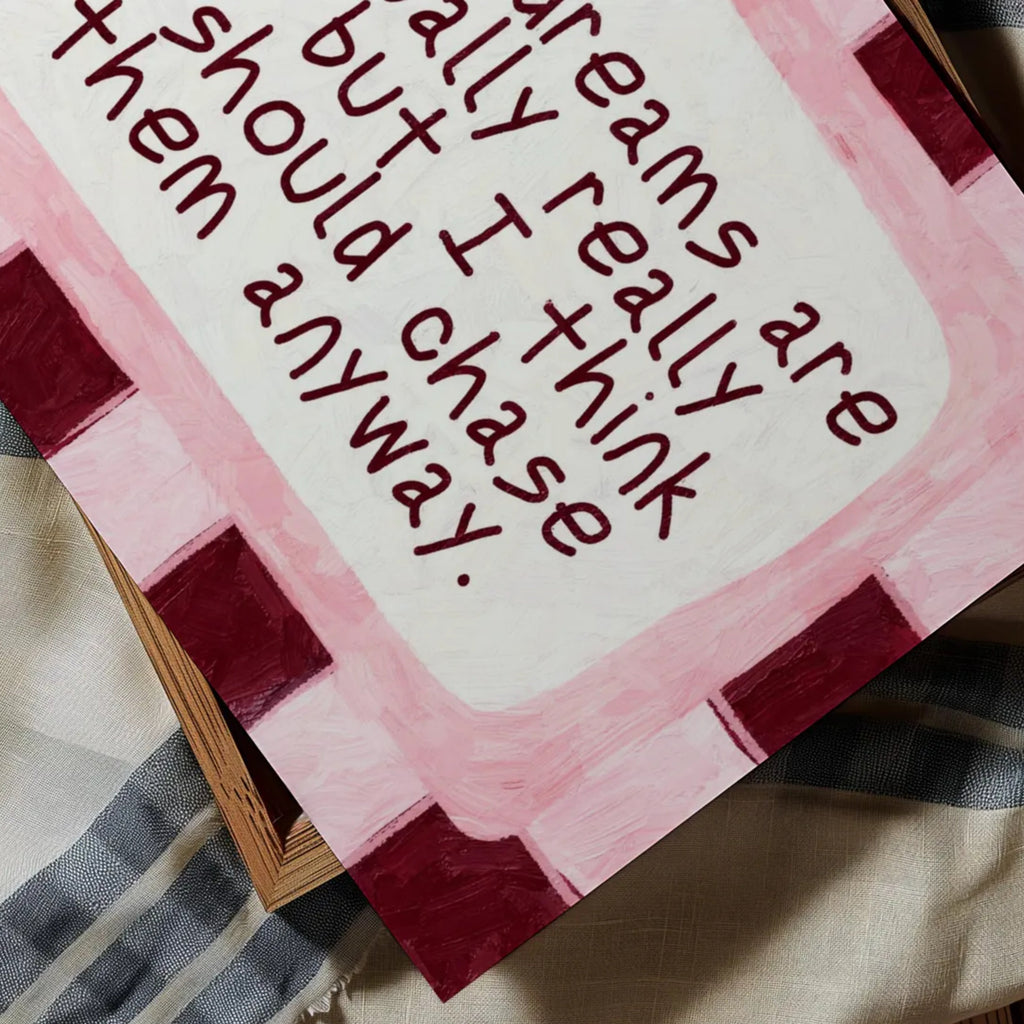 dreams are
eally really
but I think
should chase
them anyway.